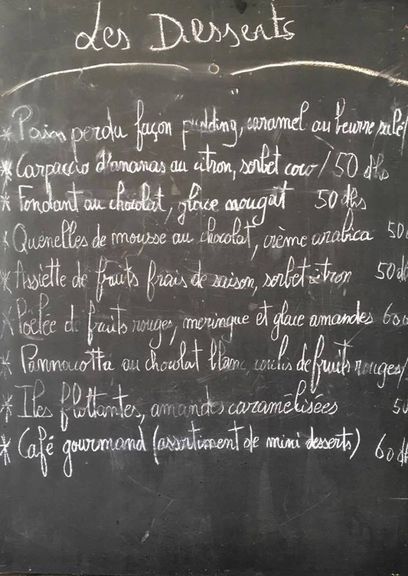 Les Desserts
* Pain perdu façon pudding, caramel au beurre salé/
* Carpaccio d'ananas au citron, sorbet coco / 50 dhs
* Fondant au chocolat, glace nougat 50 dhs
* Quenelles de mousse au chocolat, crème arabica 50
* Assiette de fruits frais de saison, sorbet citron 50 d
* Poêlée de fruits rouges, meringue et glace amandes 60
* Pannacotta au chocolat blanc, coulis de fruits rouges/
* Iles flottantes, amandes caramélisées 50
* Café gourmand (assortiment de mini desserts) 60 d